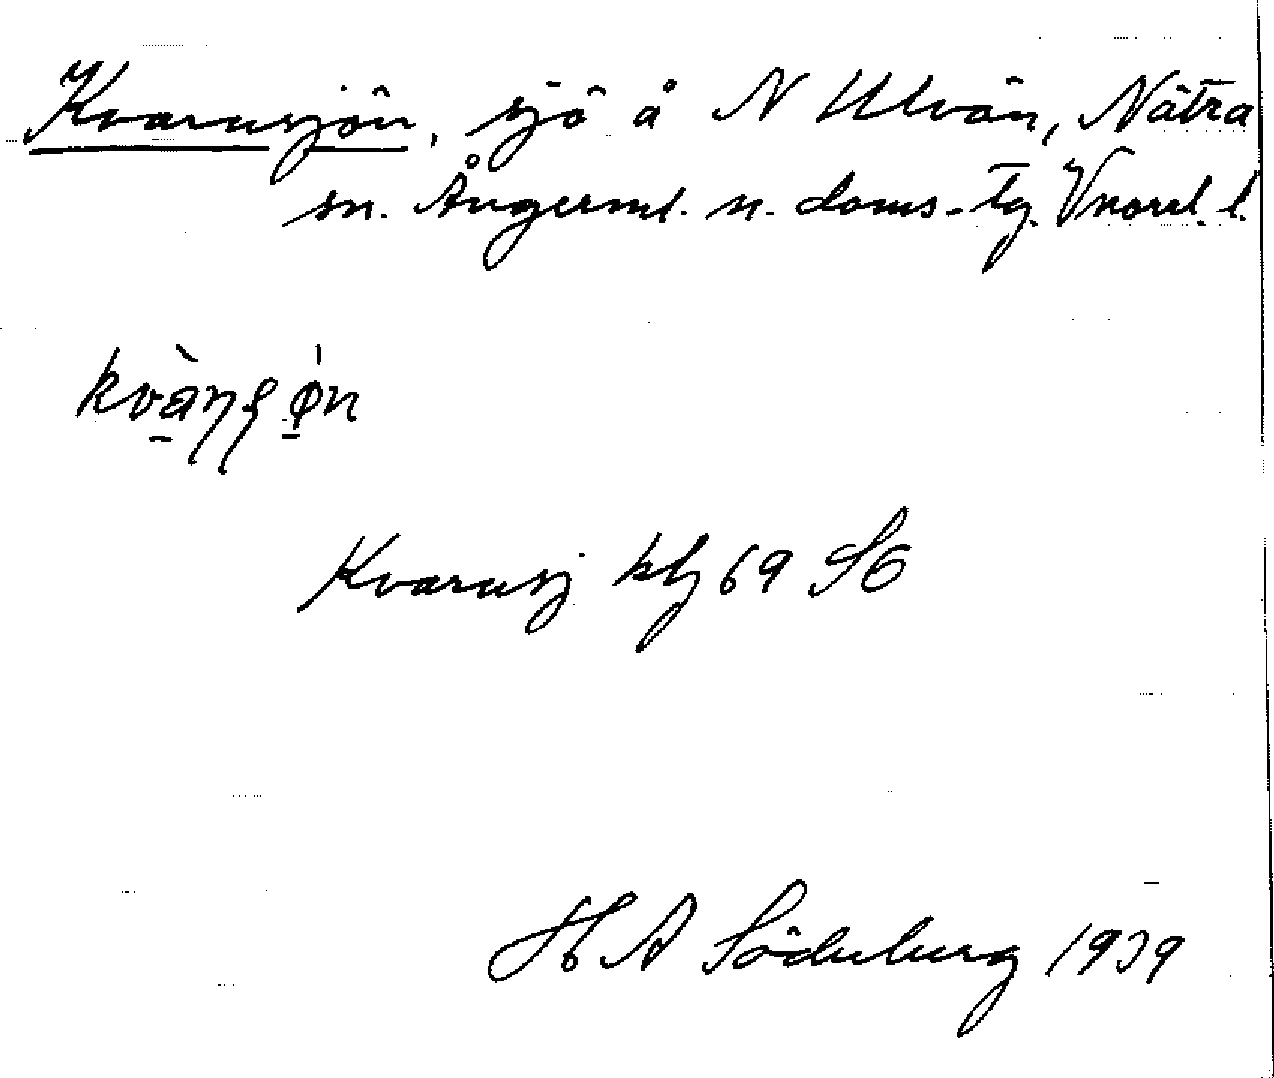 Kvarnsjön, sjö å N Ulvön, Nätra
sn. Ångerml. n. doms-tg. Vnorrl. l.
Kvarnsj kbl 69 SG
H A Söderberg 1939